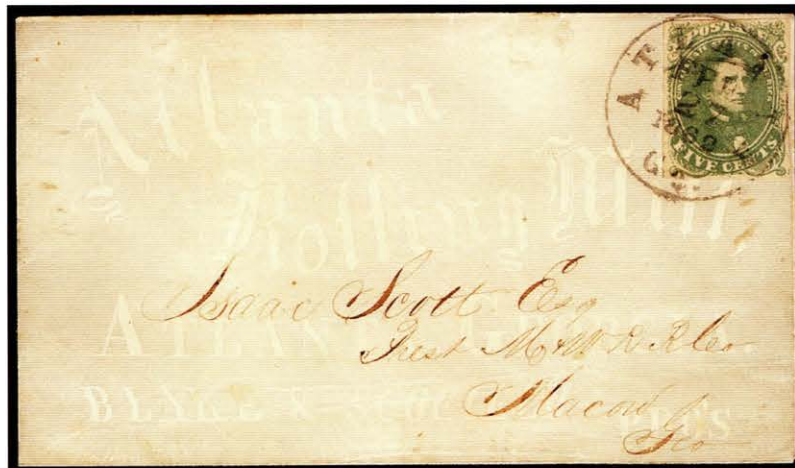 POSTAGE
FIVE CENTS
ATLANTA
1862
Ga.
Atlanta
Rolling Mill
ATLANTA
Isaac Scott Esq
Prest M & W R R Co
Macon
Geo